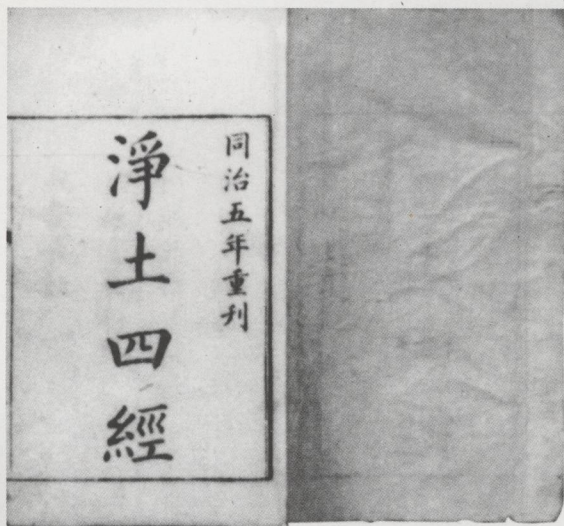 同治五年重刊
淨土四經